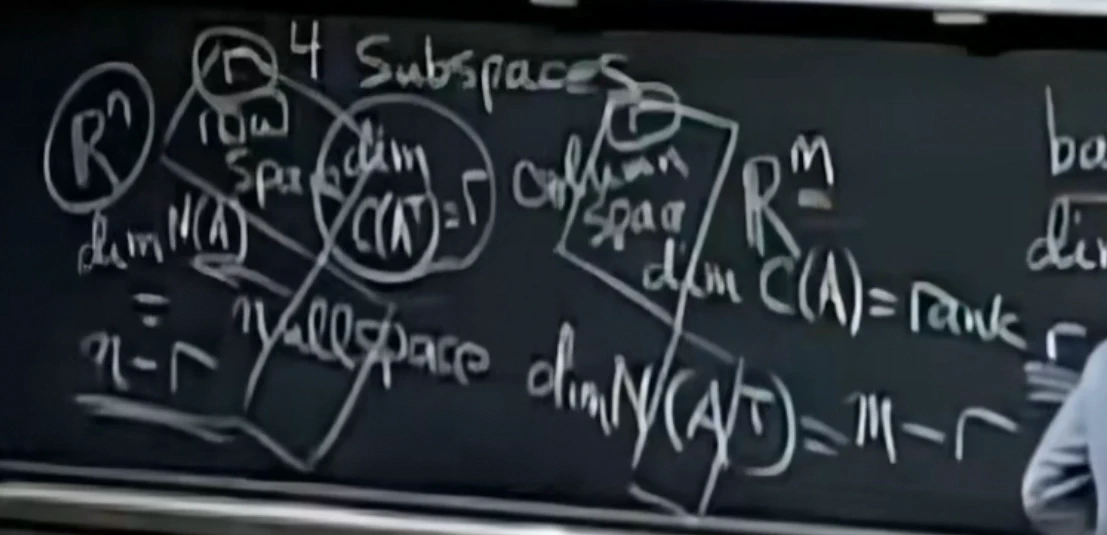 4 Subspaces
Rⁿ
r
row
space
dim
C(Aᵀ)=r
dim N(A)
=
n-r
nullspace
r
column
space
Rᵐ
dim C(A)=rank
r
dim N(Aᵀ)=m-r
ba
di